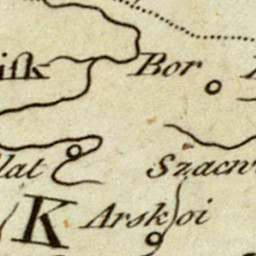 isk Bor
lat Szacw
K Arskoi